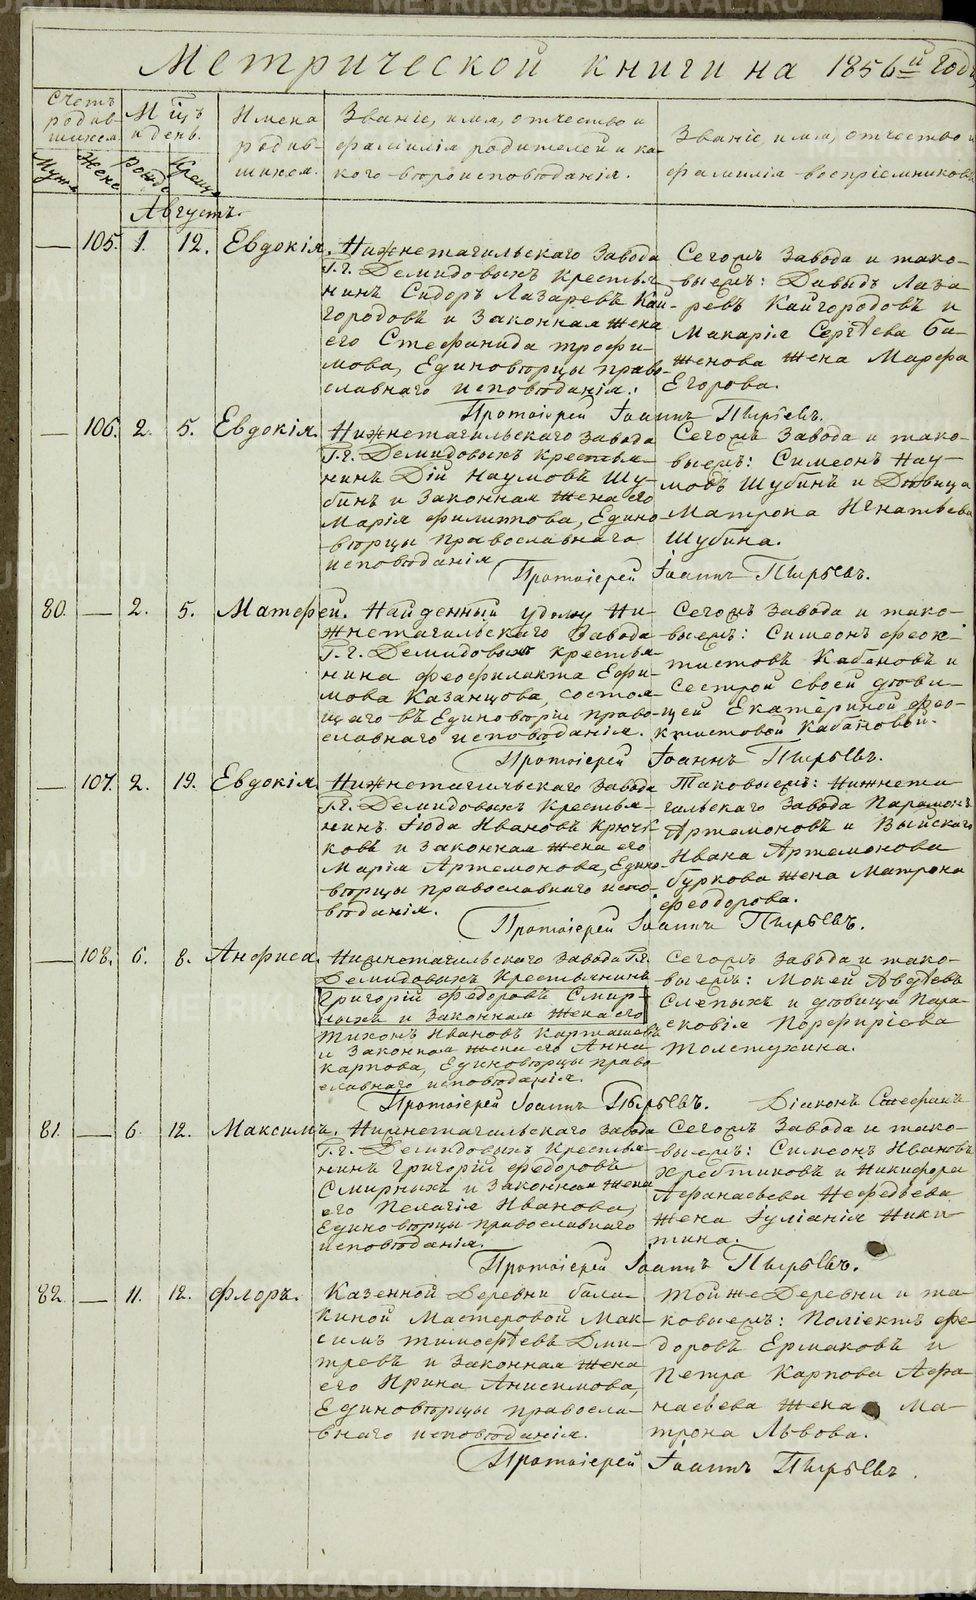 METRIKI.GASO-URAL.RU
Метрической книги на 1856й годъ
Счетъ родившихся
Мужа Жене
Мцъ и день.
Рожд Крещ
Имена родившихся.
Званіе, имя, отчество и фамилія родителей и какого вѣроисповѣданія.
Званіе, имя, отчество и фамилія воспріемниковъ
Августъ.
— 105. 1. 12. Евдокія.
Нижнетагильскаго Завода
Г.г. Демидовыхъ крестья-
нинъ Сидоръ Лазаревъ Кай-
городовъ и Законная Жена
его Стефанида Трофи-
мова, Единовѣрцы право-
славнаго исповѣданія.
Сегожъ Завода и тако-
выежъ: Давыдъ Лаза-
ревъ Кайгородовъ и
Макарія Сергѣева Ба-
женова Жена Марфа
Егорова.
Протоіерей Іоаннъ Пырьевъ.
— 106. 2. 5. Евдокія.
Нижнетагильскаго Завода
Г.г. Демидовыхъ крестья-
нинъ Дій Наумовъ Шу-
бинъ и Законная Жена его
Марія Филиппова, Едино-
вѣрцы Православнаго
исповѣданія
Сегожъ Завода и тако-
выежъ: Симеонъ Нау-
мовъ Шубинъ и Дѣвица
Матрона Игнатьева
Шубина.
Протоіерей Іоаннъ Пырьевъ.
80. — 2. 5. Матфей.
Найденный у дому Ни-
жнетагильскаго Завода
Г.г. Демидовыхъ крестья-
нина Феофилакта Ефи-
мова Казанцова, состоя-
щаго въ Единовѣріи право-
славнаго исповѣданія.
Сегожъ Завода и тако-
выежъ: Симеонъ Феок-
тистовъ Кабановъ и
Сестрой своей дѣви-
цей Екатериной Фео-
ктистовой Кабановой.
Протоіерей Іоаннъ Пырьевъ.
— 107. 2. 19. Евдокія.
Нижнетагильскаго Завода
Г.г. Демидовыхъ Крестья-
нинъ Іюда Ивановъ Крюч-
ковъ и Законная Жена его
Марія Артемонова, Едино-
вѣрцы православнаго испо-
вѣданія.
Таковыежъ: Нижнета-
гильскаго Завода Парамонъ
Артамоновъ и Выйскаго
Ивана Артемонова
Буркова Жена Матрона
Феодорова.
Протоіерей Іоаннъ Пырьевъ.
— 108. 6. 8. Анфиса.
Нижнетагильскаго Завода Г.г.
Демидовыхъ Крестьянинъ
Григорій Федоровъ Смир-
ныхъ и Законная Жена его
Тихонъ Ивановъ Карташевъ
и Законная Жена его Анна
Карпова, Единовѣрцы право-
славнаго исповѣданія.
Сегожъ Завода и тако-
выежъ: Мокей Авдѣевъ
Слепыхъ и дѣвица Пара-
сковія Порфиріева
Толстухина.
Протоіерей Іоаннъ Пырьевъ. Діаконъ Стефанъ
81. — 6. 12. Максимъ.
Нижнетагильскаго Завода
Г.г. Демидовыхъ Крестья-
нинъ Григорій Федоровъ
Смирныхъ и Законная Жена
его Пелагія Иванова,
Единовѣрцы православнаго
исповѣданія.
Сегожъ Завода и тако-
выежъ: Симеонъ Ивановъ
Хребтиковъ и Никифора
Афанасьева Нефедьева
Жена Іуліанія Ники-
тина.
Протоіерей Іоаннъ Пырьевъ.
82. — 11. 12. Флоръ.
Казенной Деревни Бала-
киной Мастеровой Мак-
симъ Тимофѣевъ Дми-
тревъ и Законная Жена
его Ирина Анисимова,
Единовѣрцы правосла-
внаго исповѣданія.
Тойже Деревни и та-
ковыежъ: Поліектъ Фе-
доровъ Ермаковъ и
Петра Карпова Афа-
насьева Жена Ма-
трона Львова.
Протоіерей Іоаннъ Пырьевъ.
METRIKI.GASO-URAL.RU